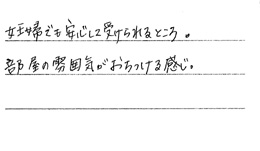 妊婦でも安心して受けられるところ。
部屋の雰囲気がおちつける感じ。